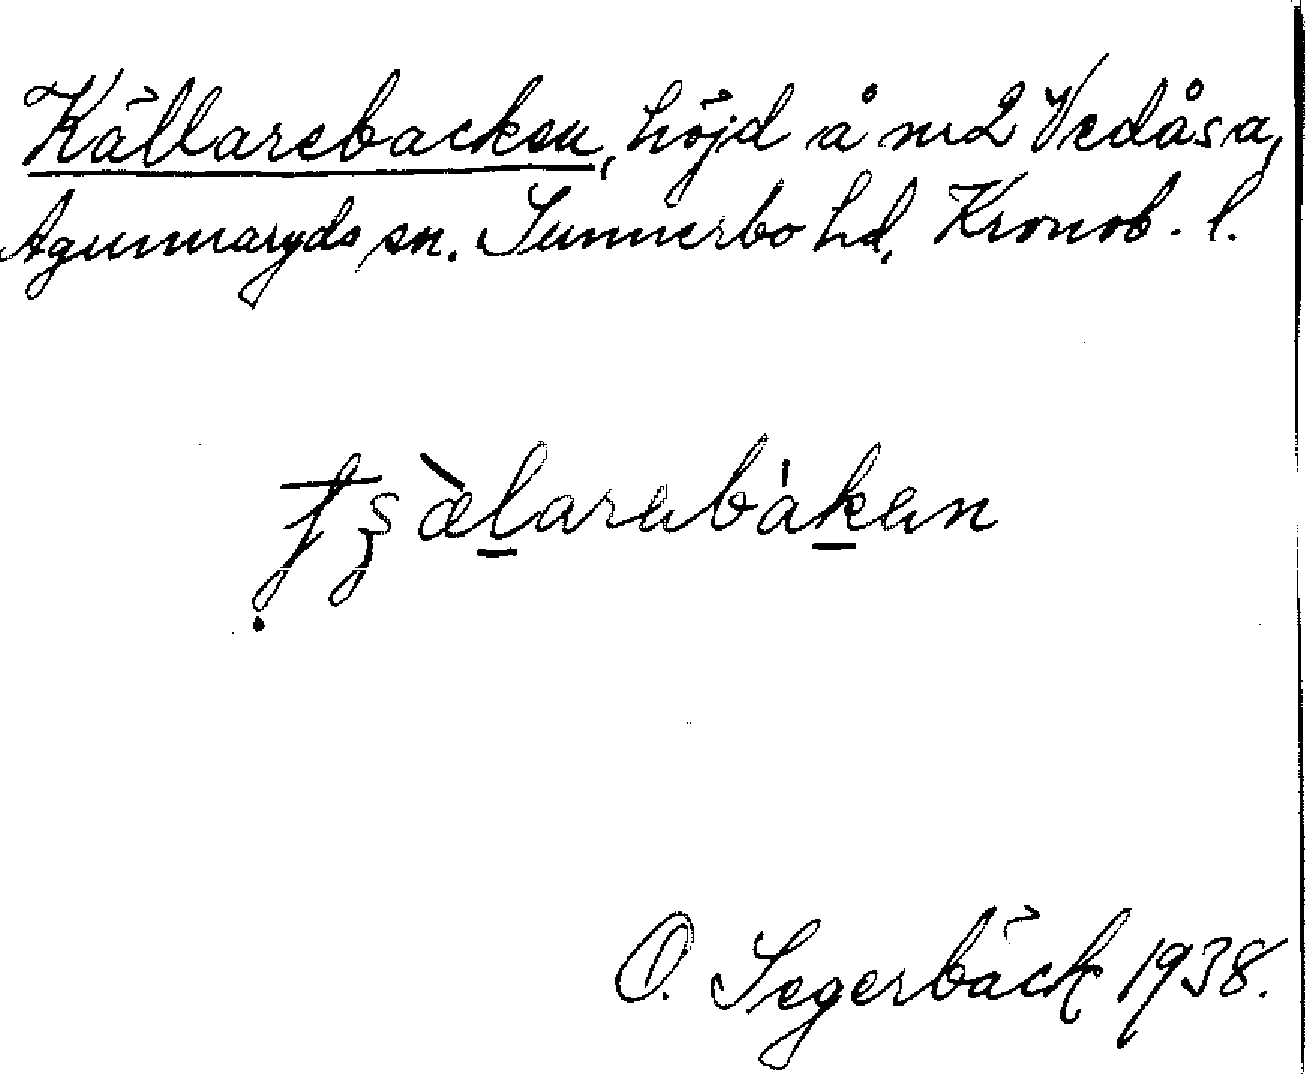 Källarebacken, höjd å nr 2 Vedåsa,
Agunnaryds sn. Sunnerbo hd, Kronob. l.
O. Segerbäck 1938.